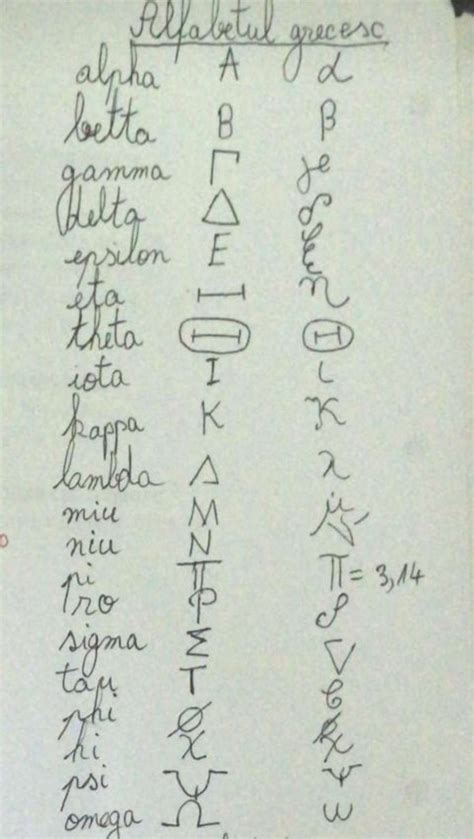 Alfabetul grecesc
alpha Α α
betta Β β
gamma Γ γ
delta Δ δ
epsilon Ε ε
eta Η η
theta Θ Θ
iota Ι ι
kappa Κ κ
lambda Λ λ
miu Μ μ
niu Ν ν
pi Π Π = 3,14
ro Ρ ρ
sigma Σ
tau Τ τ
phi Φ
hi Χ χ
psi Ψ ψ
omega Ω ω